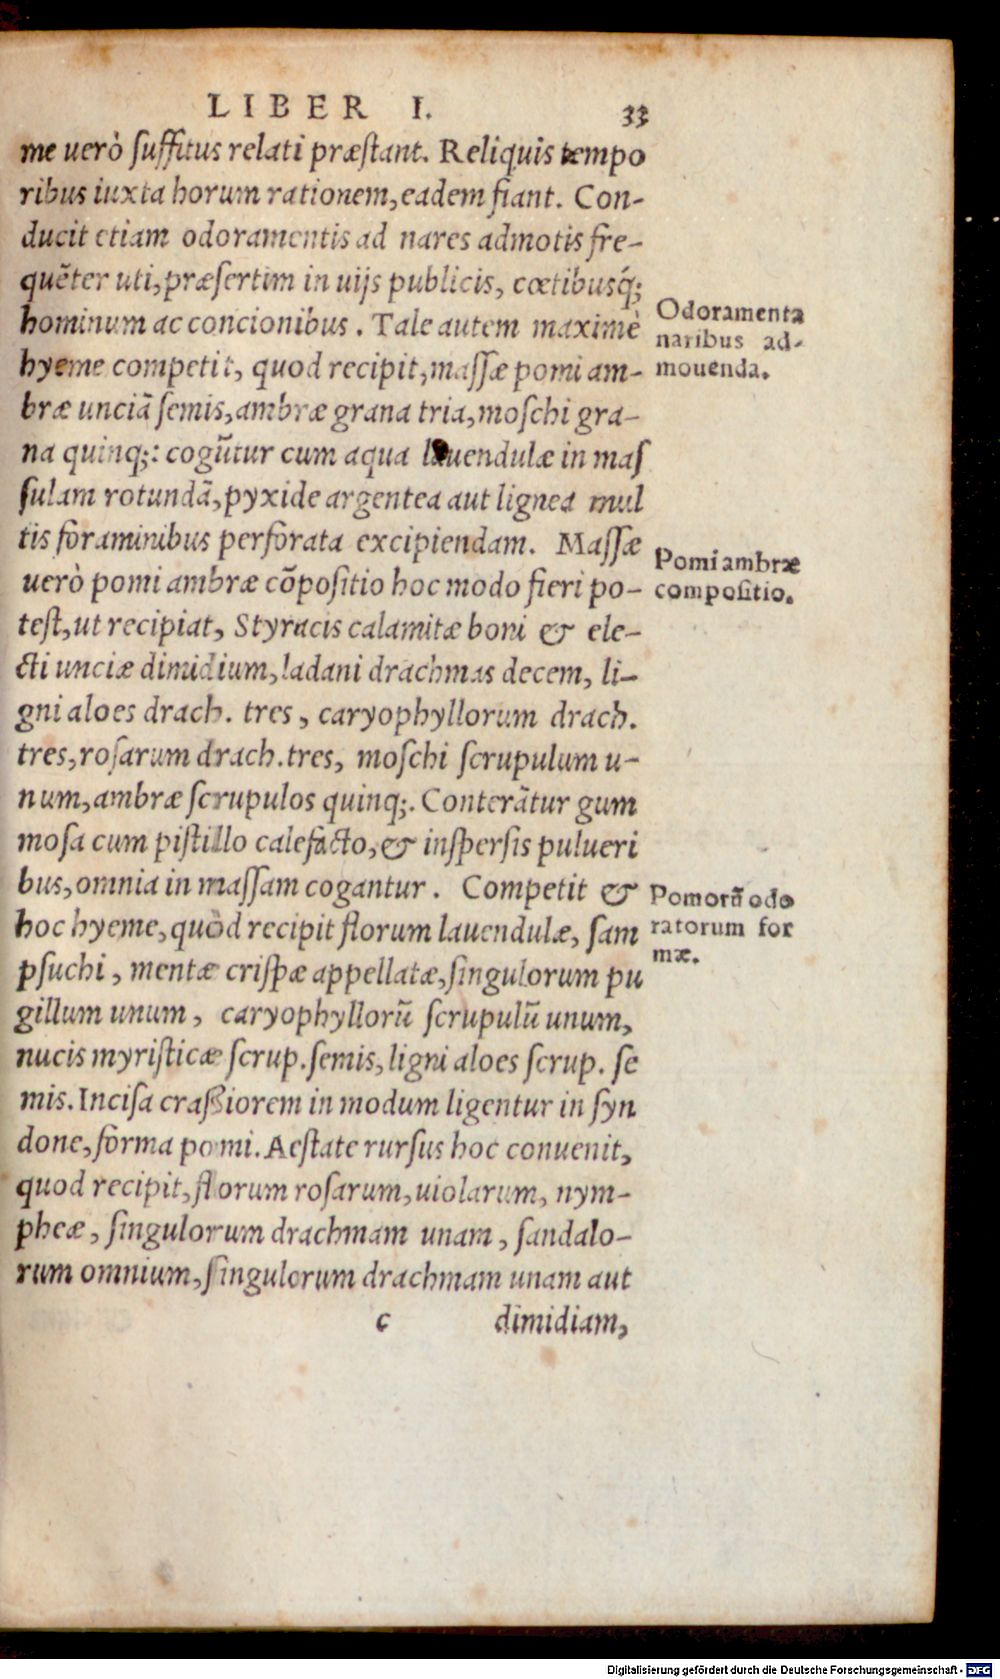 LIBER I. 33
me uerò ſuffitus relati præſtant. Reliquis tempo
ribus iuxta horum rationem, eadem fiant. Con-
ducit etiam odoramentis ad nares admotis fre-
quẽter uti, præſertim in uijs publicis, cœtibusq́;
hominum ac concionibus. Tale autem maximè
Odoramenta
naribus ad-
mouenda.
hyeme competit, quod recipit, maſſæ pomi am-
bræ unciã ſemis, ambræ grana tria, moſchi gra-
na quinq;: cogũtur cum aqua lauendulæ in maſ
ſulam rotundã, pyxide argentea aut lignea mul
tis foraminibus perforata excipiendam. Maſſæ
Pomi ambræ
compoſitio.
uerò pomi ambræ cõpoſitio hoc modo fieri po-
teſt, ut recipiat, Styracis calamitæ boni & ele-
cti unciæ dimidium, ladani drachmas decem, li-
gni aloes drach. tres, caryophyllorum drach.
tres, roſarum drach. tres, moſchi ſcrupulum u-
num, ambræ ſcrupulos quinq;. Conterãtur gum
moſa cum piſtillo calefacto, & inſperſis pulueri
bus, omnia in maſſam cogantur. Competit &
Pomorũ odo
ratorum for
mæ.
hoc hyeme, quòd recipit florum lauendulæ, ſam
pſuchi, mentæ criſpæ appellatæ, ſingulorum pu
gillum unum, caryophyllorũ ſcrupulũ unum,
nucis myriſticæ ſcrup. ſemis, ligni aloes ſcrup. ſe
mis. Inciſa craßiorem in modum ligentur in ſyn
done, forma pomi. Aeſtate rurſus hoc conuenit,
quod recipit, florum roſarum, uiolarum, nym-
pheæ, ſingulorum drachmam unam, ſandalo-
rum omnium, ſingulorum drachmam unam aut
c dimidiam,
Digitalisierung gefördert durch die Deutsche Forschungsgemeinschaft - DFG